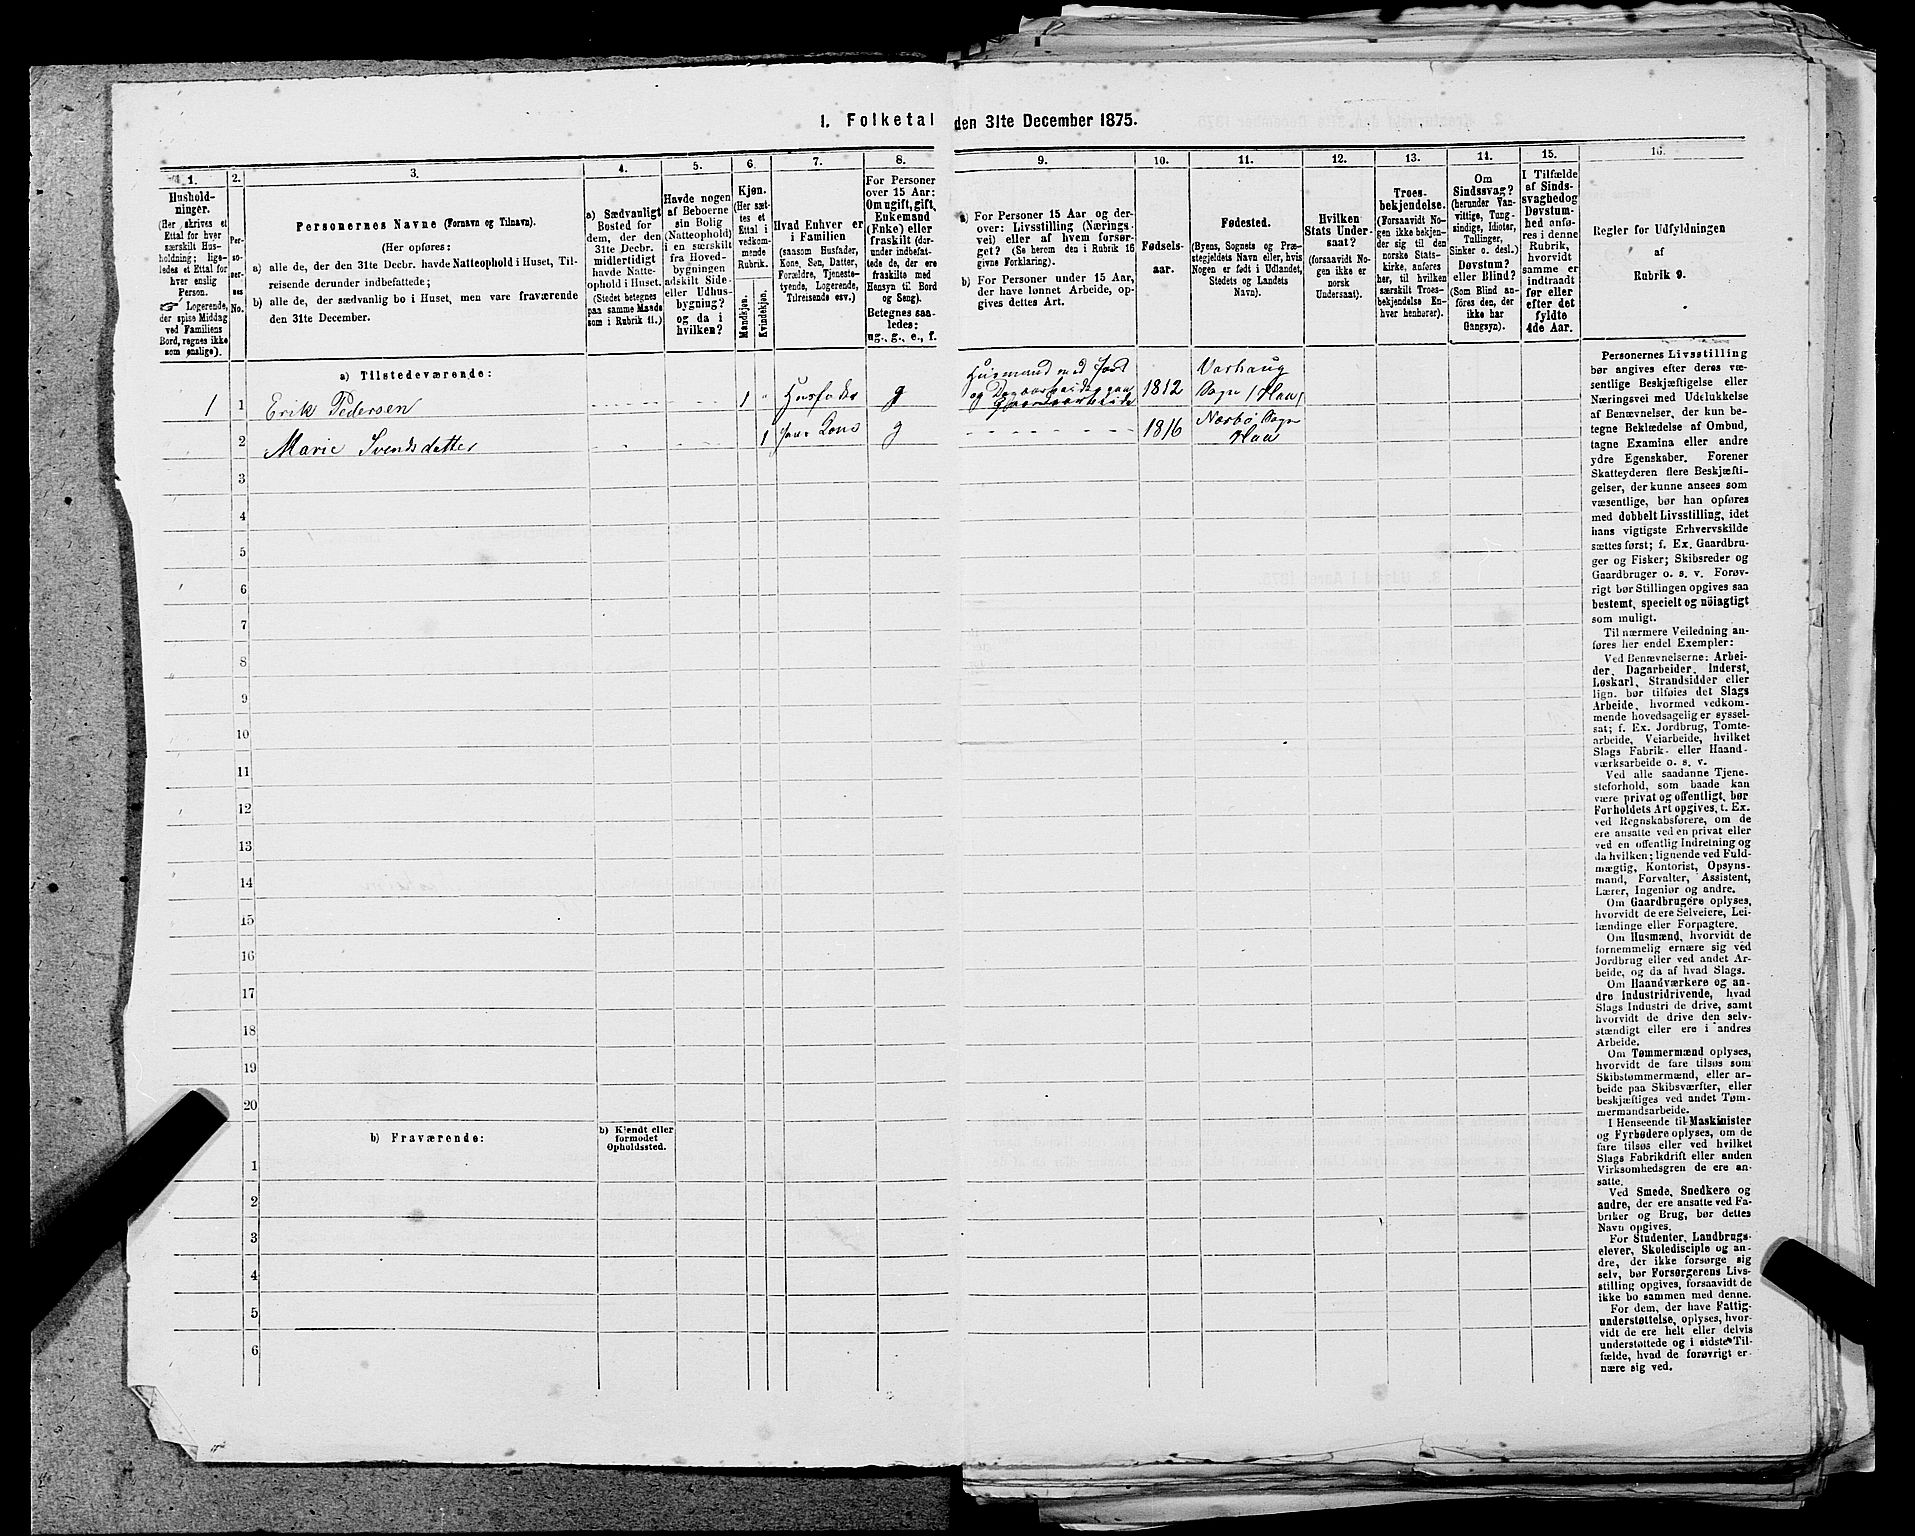 1. Folketal den 31te December 1875.
1.
Hushold-
ninger.
(Her skrives et
Ettal for hver
særskilt Hus-
holdning; lige-
ledes et Ettal for
hver enslig
Person.
☞ Logerende,
der spise Middag
ved Familiens
Bord, regnes ikke
som enslige).
2.
Per-
so-
ner-
nes
No.
3.
Personernes Navne (Fornavn og Tilnavn).
(Her opføres:
a) alle de, der den 31te Decbr. havde Natteophold i Huset, Til-
reisende derunder indbefattede;
b) alle de, der sædvanlig bo i Huset, men vare fraværende
den 31te December.
4.
a) Sædvanligt
Bosted for
dem, der den
31te Decbr.
midlertidigt
havde Natte-
ophold i Huset.
(Stedet betegnes
paa samme Maade
som i Rubrik 11.)
5.
Havde nogen
af Beboerne
sin Bolig
(Natteophold)
i en særskilt
fra Hoved-
bygningen
adskilt Side-
eller Udhus-
bygning?
og da i
hvilken?
6.
Kjøn.
(Her sæt-
tes et
Ettal i
vedkom-
mende
Rubrik.
Mandkjøn.
Kvindekjøn.
7.
Hvad Enhver er
i Familien
(saasom Husfader,
Kone, Søn, Datter,
Forældre, Tjeneste-
tyende, Logerende,
Tilreisende osv.)
8.
For Personer
over 15 Aar:
Om ugift, gift,
Enkemand
(Enke) eller
fraskilt (der-
under indbefat-
tede de, der ere
fraskilte med
Hensyn til Bord
og Seng).
Betegnes saa-
ledes:
ug., g., e., f.
9.
a) For Personer 15 Aar og der-
over: Livsstilling (Nærings-
vei) eller af hvem forsør-
get? (Se herom den i Rubrik 16
givne Forklaring).
b) For Personer under 15 Aar,
der have lønnet Arbeide, op-
gives dettes Art.
10.
Fødsels-
aar.
11.
Fødested.
(Byens, Sognets og Præ-
stegjeldets Navn eller, hvis
Nogen er født i Udlandet,
Stedets og Landets
Navn).
12.
Hvilken
Stats Under-
saat?
(forsaavidt No-
gen ikke er
norsk
Undersaat).
13.
Troes-
bekjendelse.
(Forsaavidt No-
gen ikke bekjen-
der sig til den
norske Stats-
kirke, anføres
her, til hvilken
særskilt Troes-
bekjendelse En-
hver henhører).
14.
Om
Sindssvag?
(herunder Van-
vittige, Tung-
sindige, Idioter,
Tullinger,
Sinker o. desl.)
Døvstum?
eller Blind?
(Som Blind an-
føres den, der
ikke har
Gangsyn).
15.
I Tilfælde
af Sinds-
svaghed og
Døvstum-
hed anfø-
res i denne
Rubrik,
hvorvidt
samme er
indtraadt
før eller
efter det
fyldte
4de Aar.
16.
Regler for Udfyldningen
af
Rubrik 9.
a) Tilstedeværende:
1 1 Erik Pedersen 1 " Husfader g Husmand med Jord 1812 Varhaug
Sogn / Haa
2 Marie Svendsdatter 1 hans Kone g 1816 Nærbø Sogn
Haa
3
4
5
6
7
8
9
10
11
12
13
14
15
16
17
18
19
20
b) Fraværende:
b) Kjendt eller
formodet
Opholdssted.
1
2
3
4
5
6
Personernes Livsstilling
bør angives efter deres væ-
sentlige Beskjæftigelse eller
Næringsvei med Udelukkelse
af Benævnelser, der kun be-
tegne Beklædelse af Ombud,
tagne Examina eller andre
ydre Egenskaber. Forener
Skatteyderen flere Beskjæfti-
gelser, der kunne ansees som
væsentlige, bør han opføres
med dobbelt Livsstilling, idet
hans vigtigste Erhvervskilde
sættes først; f. Ex. Gaardbru-
ger og Fisker; Skibsreder og
Gaardbruger o. s. v. Forøv-
rigt bør Stillingen opgives saa
bestemt, specielt og nöiagtigt
som muligt.
Til nærmere Veiledning an-
føres her endel Exempler:
Ved Benævnelserne: Arbei-
der, Dagarbeider, Inderst,
Løskarl, Strandsidder eller
lign. bør tilføies det Slags
Arbeide, hvormed vedkom-
mende hovedsagelig er syssel-
sat; f. Ex. Jordbrug, Tomte-
arbeide, Veiarbeide, hvilket
Slags Fabrik- eller Haand-
værksarbeide o. s. v.
Ved alle saadanne Tjene-
steforhold, som baade kan
være privat og offentligt, bør
Forholdets Art opgives, t. Ex.
ved Regnskabsførere, om de
ere ansatte ved en privat eller
ved en offentlig Indretning og
da hvilken; lignende ved Fuld-
mægtig, Kontorist, Opsyns-
mand, Forvalter, Assistent,
Lærer, Ingeniør og andre.
Om Gaardbrugere oplyses,
hvorvidt de ere Selveiere, Lei-
lændinge eller Forpagtere.
Om Husmænd, hvorvidt de
fornemmelig ernære sig ved
Jordbrug eller ved andet Ar-
beide, og da af hvad Slags.
Om Haandværkere og an-
dre Industridrivende, hvad
Slags Industri de drive, samt
hvorvidt de drive den selv-
stændigt eller ere i andres
Arbeide.
Om Tømmermænd oplyses,
hvorvidt de fare tilsøs som
Skibstømmermænd, eller ar-
beide paa Skibsværfter, eller
beskjæftiges ved andet Tøm-
mermandsarbeide.
I Henseende til Maskinister
og Fyrbødere oplyses, om de
fare tilsøs eller ved hvilket
Slags Fabrikdrift eller anden
Virksomhedsgren de ere an-
satte.
Ved Smede, Snedkere og
andre, der ere ansatte ved Fa-
briker og Brug, bør dettes
Navn opgives.
For Studenter, Landbrugs-
elever, Skoledisciple og an-
dre, der ikke forsørge sig
selv, bør Forsørgerens Livs-
stilling opgives, forsaavidt de
ikke bo sammen med denne.
For dem, der have Fattig-
understøttelse, oplyses, hvor-
vidt de ere helt eller delvis
understøttede og i sidste Til-
fælde, hvad de forøvrigt er-
nære sig ved.